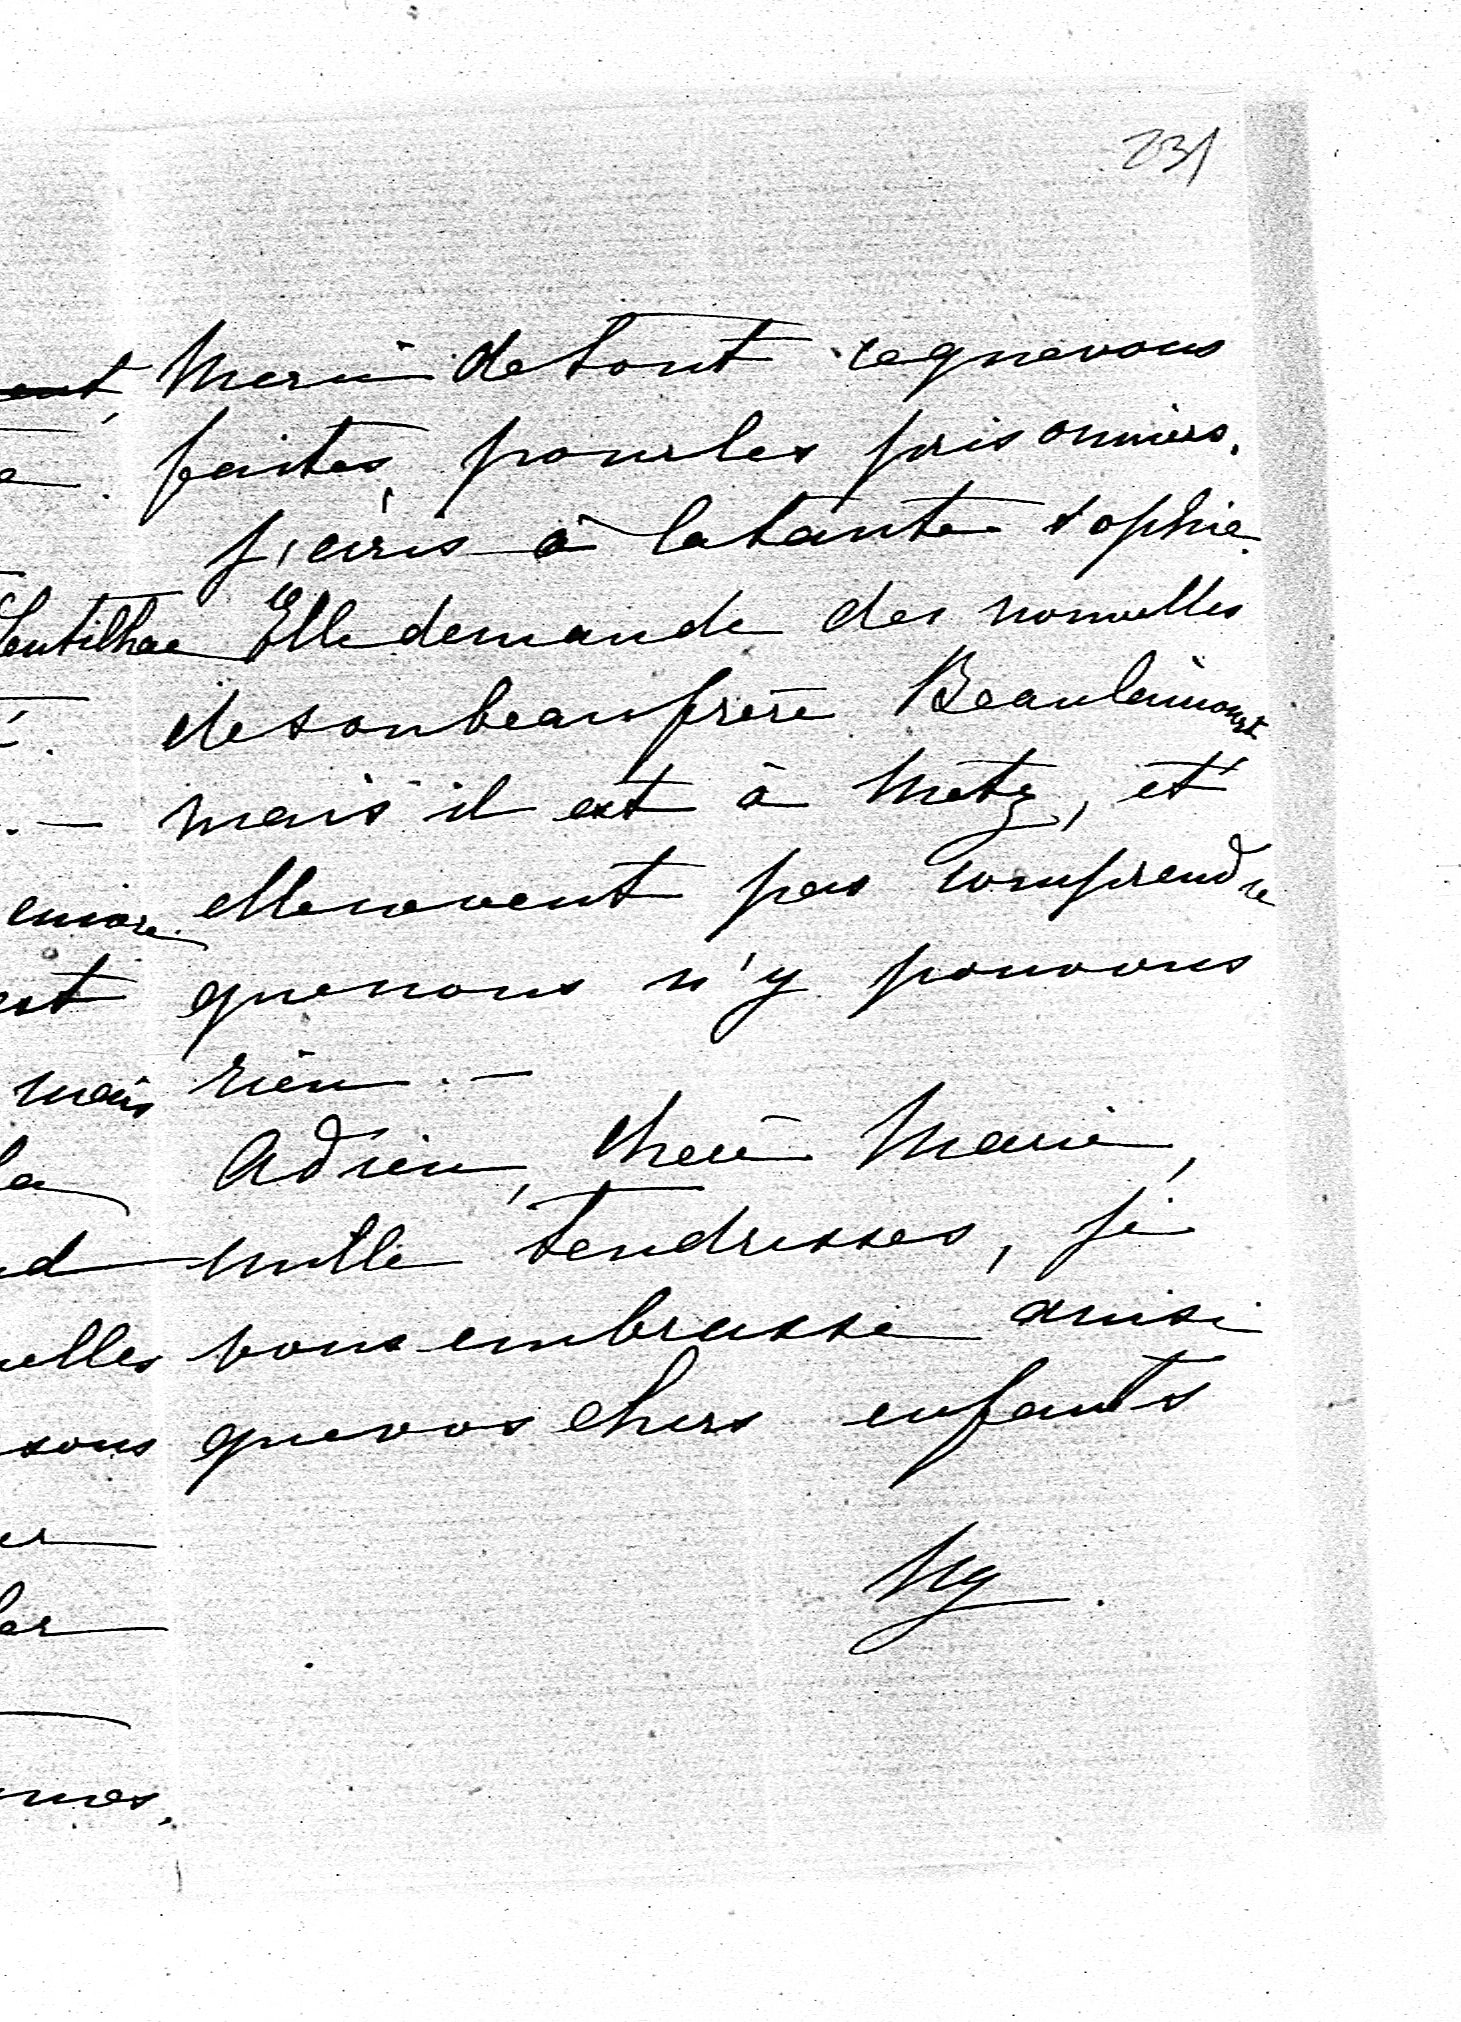 231
Merci de tout ce que vous
faites, pour les prisonniers.
J'écris à la tante Sophie.
Elle demande des nouvelles
de son beau frère Beaulaincourt
mais il est à Metz, et
elle ne veut pas comprendre
que nous n'y pouvons
rien. —
Adieu, chère Marie,
mille tendresses, je
vous embrasse ainsi
que vos chers enfants
encore
mais
la
sous